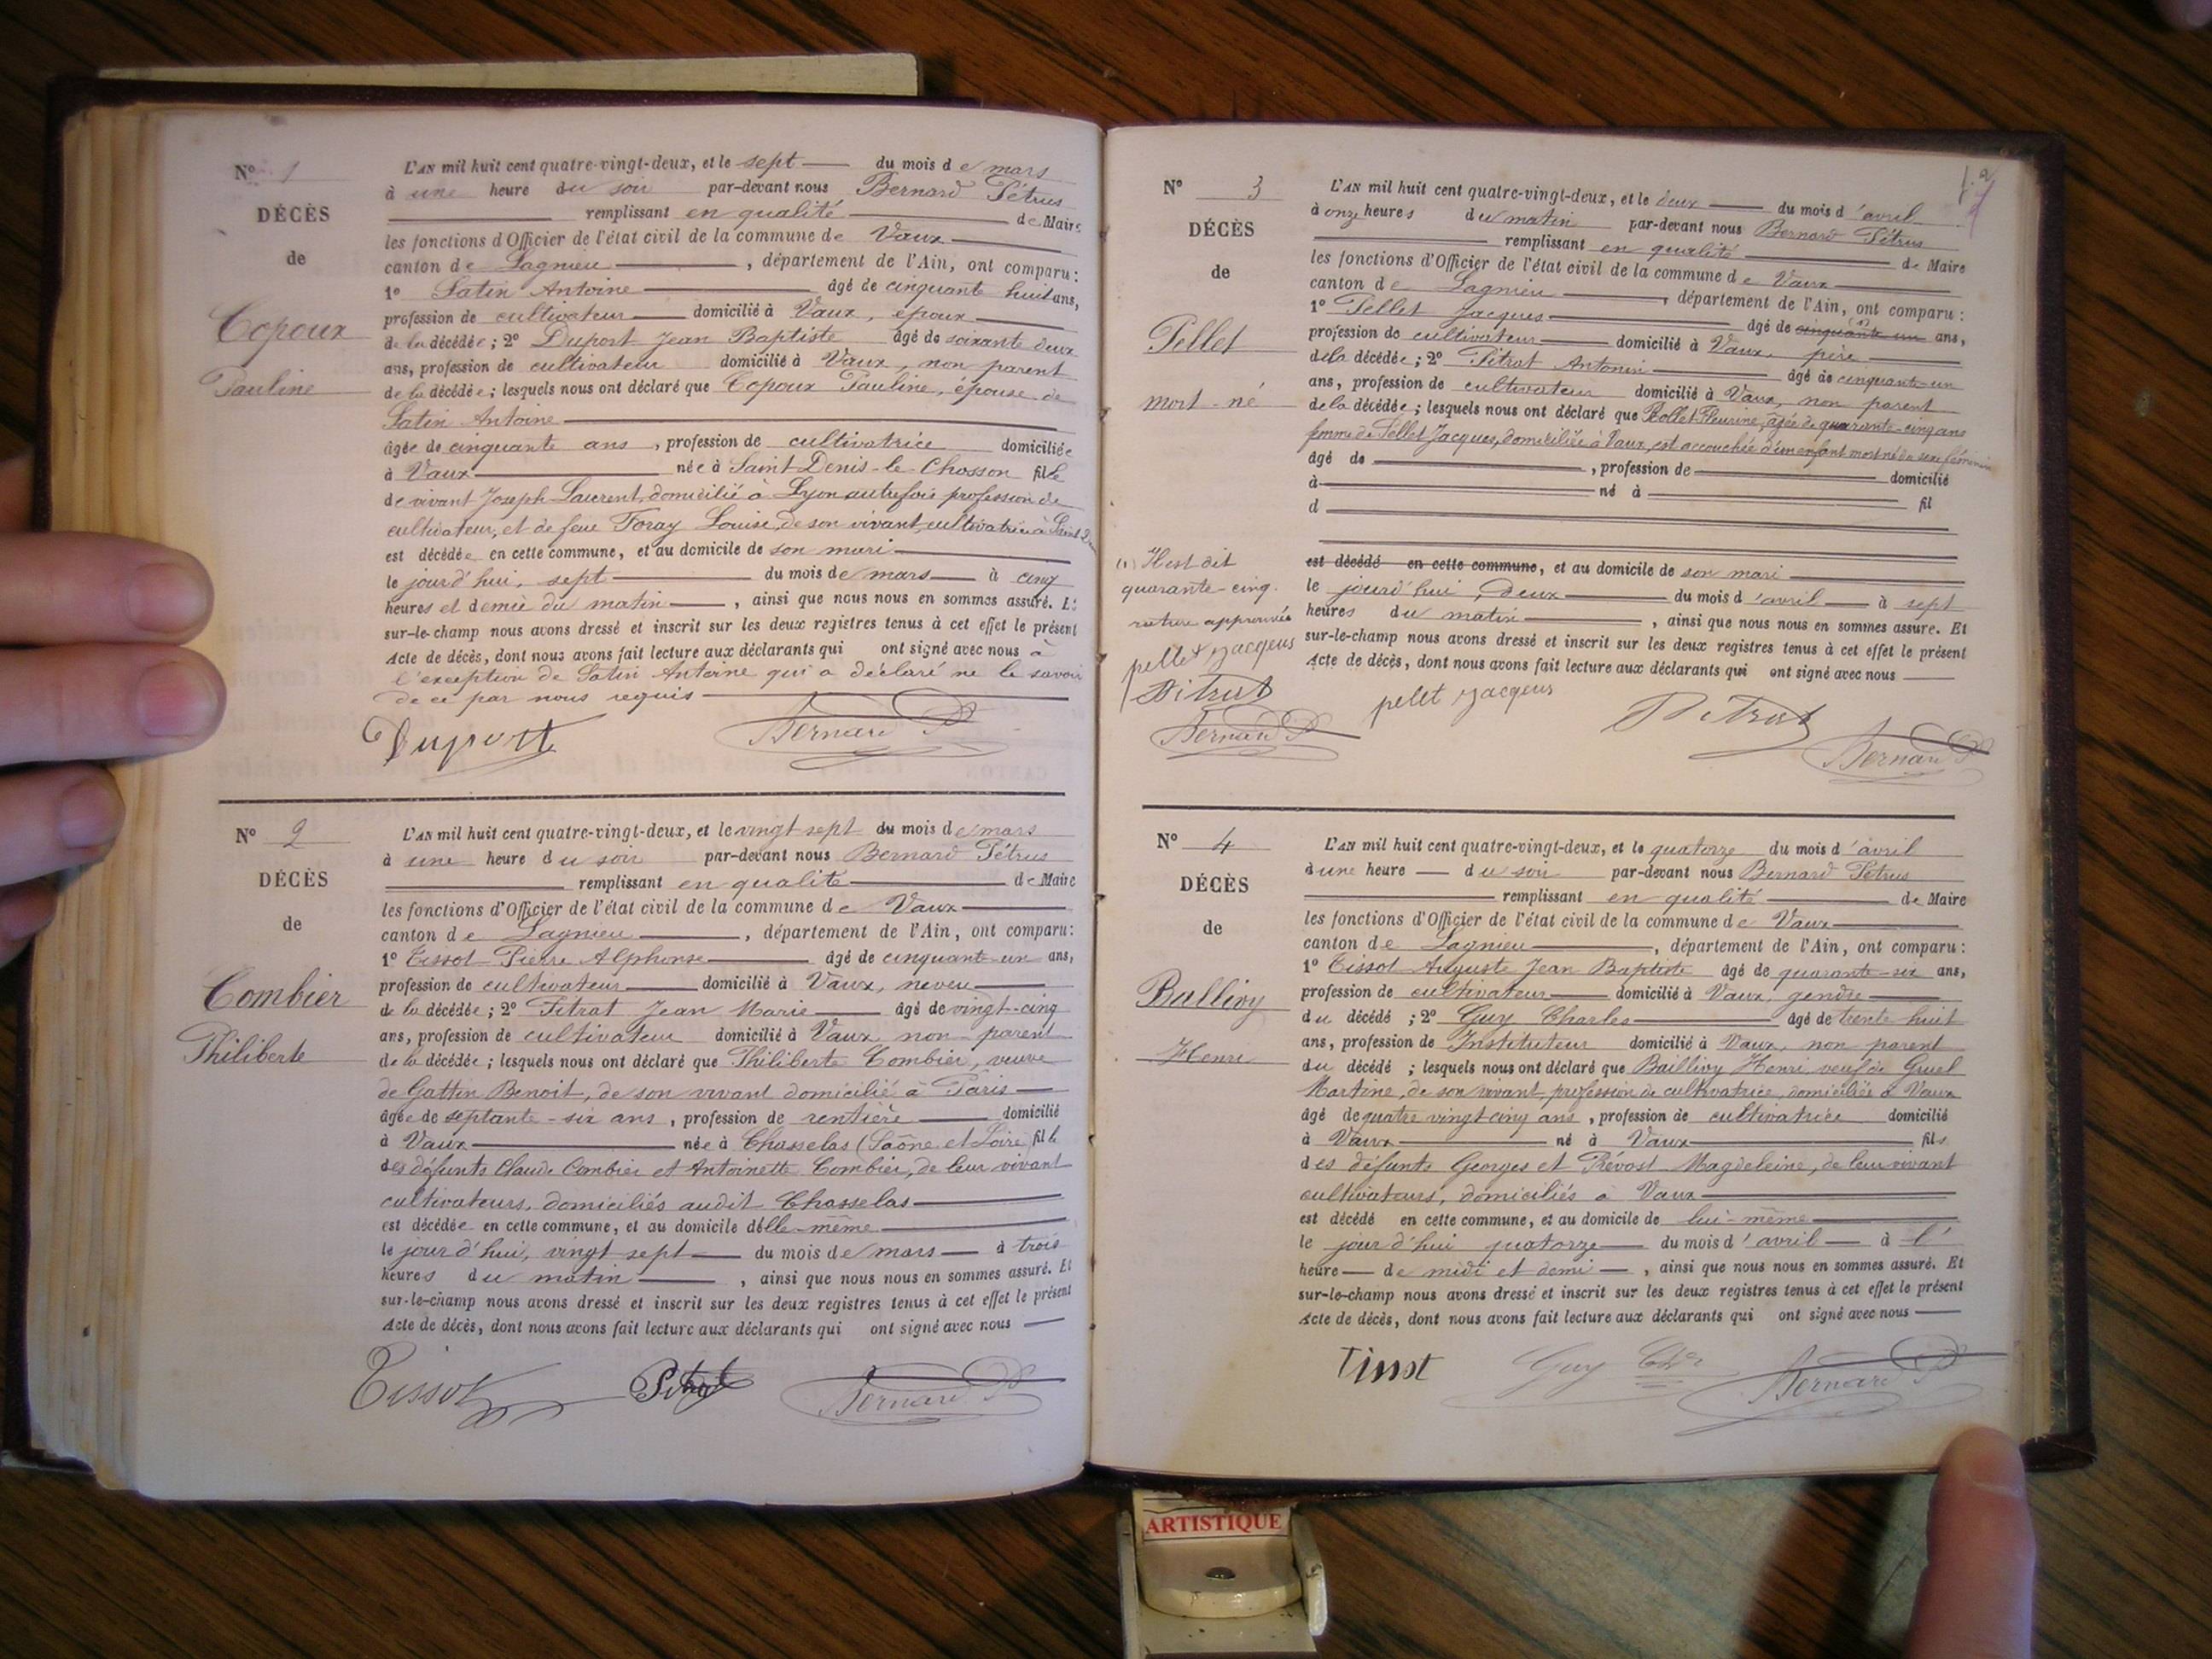 N° 1
DÉCÈS
de
Copoux
Pauline
L'AN mil huit cent quatre-vingt-deux, et le sept du mois de mars
à une heure du soir par-devant nous Bernard Pétrus
remplissant en qualité de Maire
les fonctions d'Officier de l'état civil de la commune de Vaux
canton de Lagnieu, département de l'Ain, ont comparu :
1° Satin Antoine âgé de cinquante huit ans,
profession de cultivateur domicilié à Vaux, époux
de la décédée ; 2° Duport Jean Baptiste âgé de soixante deux
ans, profession de cultivateur domicilié à Vaux, non parent
de la décédée ; lesquels nous ont déclaré que Copoux Pauline, épouse de
Satin Antoine
âgée de cinquante ans, profession de cultivatrice domiciliée
à Vaux née à Saint-Denis-le-Chosson fille
de vivant Joseph Laurent, domicilié à Lyon autrefois profession de
cultivateur, et de feue Foray Louise, de son vivant cultivatrice à Saint
est décédée en cette commune, et au domicile de son mari
le jourd'hui, sept du mois de mars à cinq
heures et demie du matin, ainsi que nous nous en sommes assuré. Et
sur-le-champ nous avons dressé et inscrit sur les deux registres tenus à cet effet le présent
Acte de décès, dont nous avons fait lecture aux déclarants qui ont signé avec nous à
l'exception de Satin Antoine qui a déclaré ne le savoir
de ce par nous requis
Duport Bernard P
N° 2
DÉCÈS
de
Combier
Philiberte
L'AN mil huit cent quatre-vingt-deux, et le vingt sept du mois de mars
à une heure du soir par-devant nous Bernard Pétrus
remplissant en qualité de Maire
les fonctions d'Officier de l'état civil de la commune de Vaux
canton de Lagnieu, département de l'Ain, ont comparu :
1° Tissot Pierre Alphonse âgé de cinquante-un ans,
profession de cultivateur domicilié à Vaux, neveu
de la décédée ; 2° Pitrat Jean Marie âgé de vingt-cinq
ans, profession de cultivateur domicilié à Vaux non parent
de la décédée ; lesquels nous ont déclaré que Philiberte Combier, veuve
de Gattin Benoit, de son vivant domicilié à Paris
âgée de septante-six ans, profession de rentière domicilié
à Vaux née à Chasselas (Saône et Loire) fille
des défunts Claude Combier et Antoinette Combier, de leur vivant
cultivateurs, domiciliés audit Chasselas
est décédée en cette commune, et au domicile d'elle-même
le jour d'hui, vingt sept du mois de mars à trois
heures du matin, ainsi que nous nous en sommes assuré. Et
sur-le-champ nous avons dressé et inscrit sur les deux registres tenus à cet effet le présent
Acte de décès, dont nous avons fait lecture aux déclarants qui ont signé avec nous
Tissot Pitrat Bernard P
N° 3
DÉCÈS
de
Pellet
mort-né
L'AN mil huit cent quatre-vingt-deux, et le deux du mois d'avril
à onze heures du matin par-devant nous Bernard Pétrus
remplissant en qualité de Maire
les fonctions d'Officier de l'état civil de la commune de Vaux
canton de Lagnieu, département de l'Ain, ont comparu :
1° Pellet Jacques âgé de cinquante un (1) ans,
profession de cultivateur domicilié à Vaux, père
de la décédée ; 2° Pitrat Antonin âgé de cinquante-un
ans, profession de cultivateur domicilié à Vaux, non parent
de la décédée ; lesquels nous ont déclaré que Rollet Fleurine, âgée de quarante-cinq ans
femme de Pellet Jacques, domiciliée à Vaux, est accouchée d'un enfant mort né du sexe féminin
âgé de, profession de domicilié
à né à
d fil
est décédé en cette commune, et au domicile de son mari
le jourd'hui, deux du mois d'avril à sept
heures du matin, ainsi que nous nous en sommes assuré. Et
sur-le-champ nous avons dressé et inscrit sur les deux registres tenus à cet effet le présent
Acte de décès, dont nous avons fait lecture aux déclarants qui ont signé avec nous
(1) Il est dit
quarante-cinq.
rature approuvée
pellet jacqeus
Pitrat
Bernard P
pelet jacqeus Pitrat Bernard P
N° 4
DÉCÈS
de
Ballivy
Henri
L'AN mil huit cent quatre-vingt-deux, et le quatorze du mois d'avril
à une heure du soir par-devant nous Bernard Pétrus
remplissant en qualité de Maire
les fonctions d'Officier de l'état civil de la commune de Vaux
canton de Lagnieu, département de l'Ain, ont comparu :
1° Tissot Auguste Jean Baptiste âgé de quarante-six ans,
profession de cultivateur domicilié à Vaux, gendre
du décédé ; 2° Guy Charles âgé de trente huit
ans, profession de Instituteur domicilié à Vaux, non parent
du décédé ; lesquels nous ont déclaré que Baillivy Henri veuf de Gruel
Martine, de son vivant, profession de cultivatrice, domiciliée à Vaux
âgé de quatre vingt cinq ans, profession de cultivatrice domicilié
à Vaux né à Vaux fils
des défunts Georges et Prévost Magdeleine, de leur vivant
cultivateurs, domiciliés à Vaux
est décédé en cette commune, et au domicile de lui-même
le jour d'hui quatorze du mois d'avril à l'
heure de midi et demi, ainsi que nous nous en sommes assuré. Et
sur-le-champ nous avons dressé et inscrit sur les deux registres tenus à cet effet le présent
Acte de décès, dont nous avons fait lecture aux déclarants qui ont signé avec nous
Tissot Guy Ch Bernard P
ARTISTIQUE